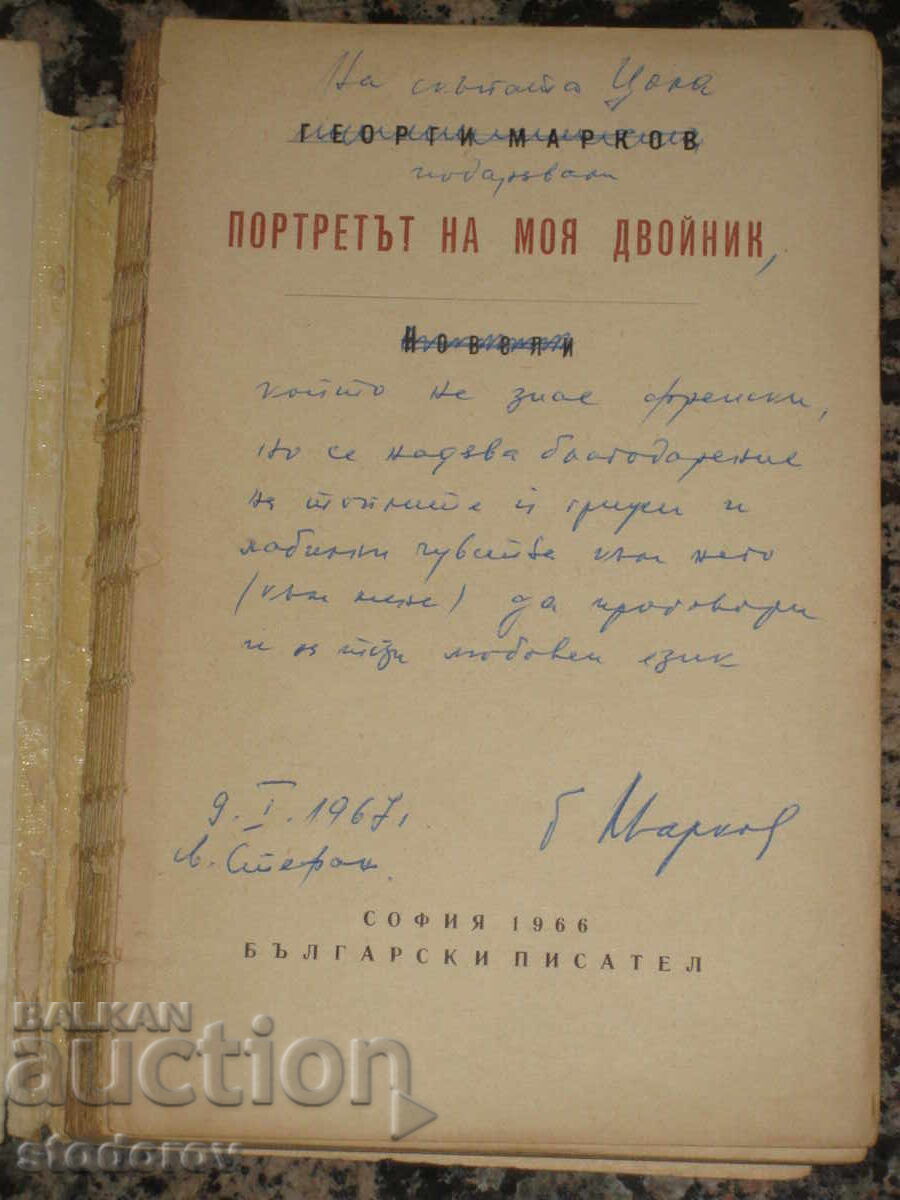 На скъпата Цона
ГЕОРГИ МАРКОВ
подарявам
ПОРТРЕТЪТ НА МОЯ ДВОЙНИК,
Новели
който не знае френски,
но се надява благодарение
на топлите ѝ грижи и
чувства към него
(към мене) да проговори
и на този любовен език
9. I. 1967г.
Стефан
Г Марков
СОФИЯ 1966
БЪЛГАРСКИ ПИСАТЕЛ
BALKAN
auction
stodorov